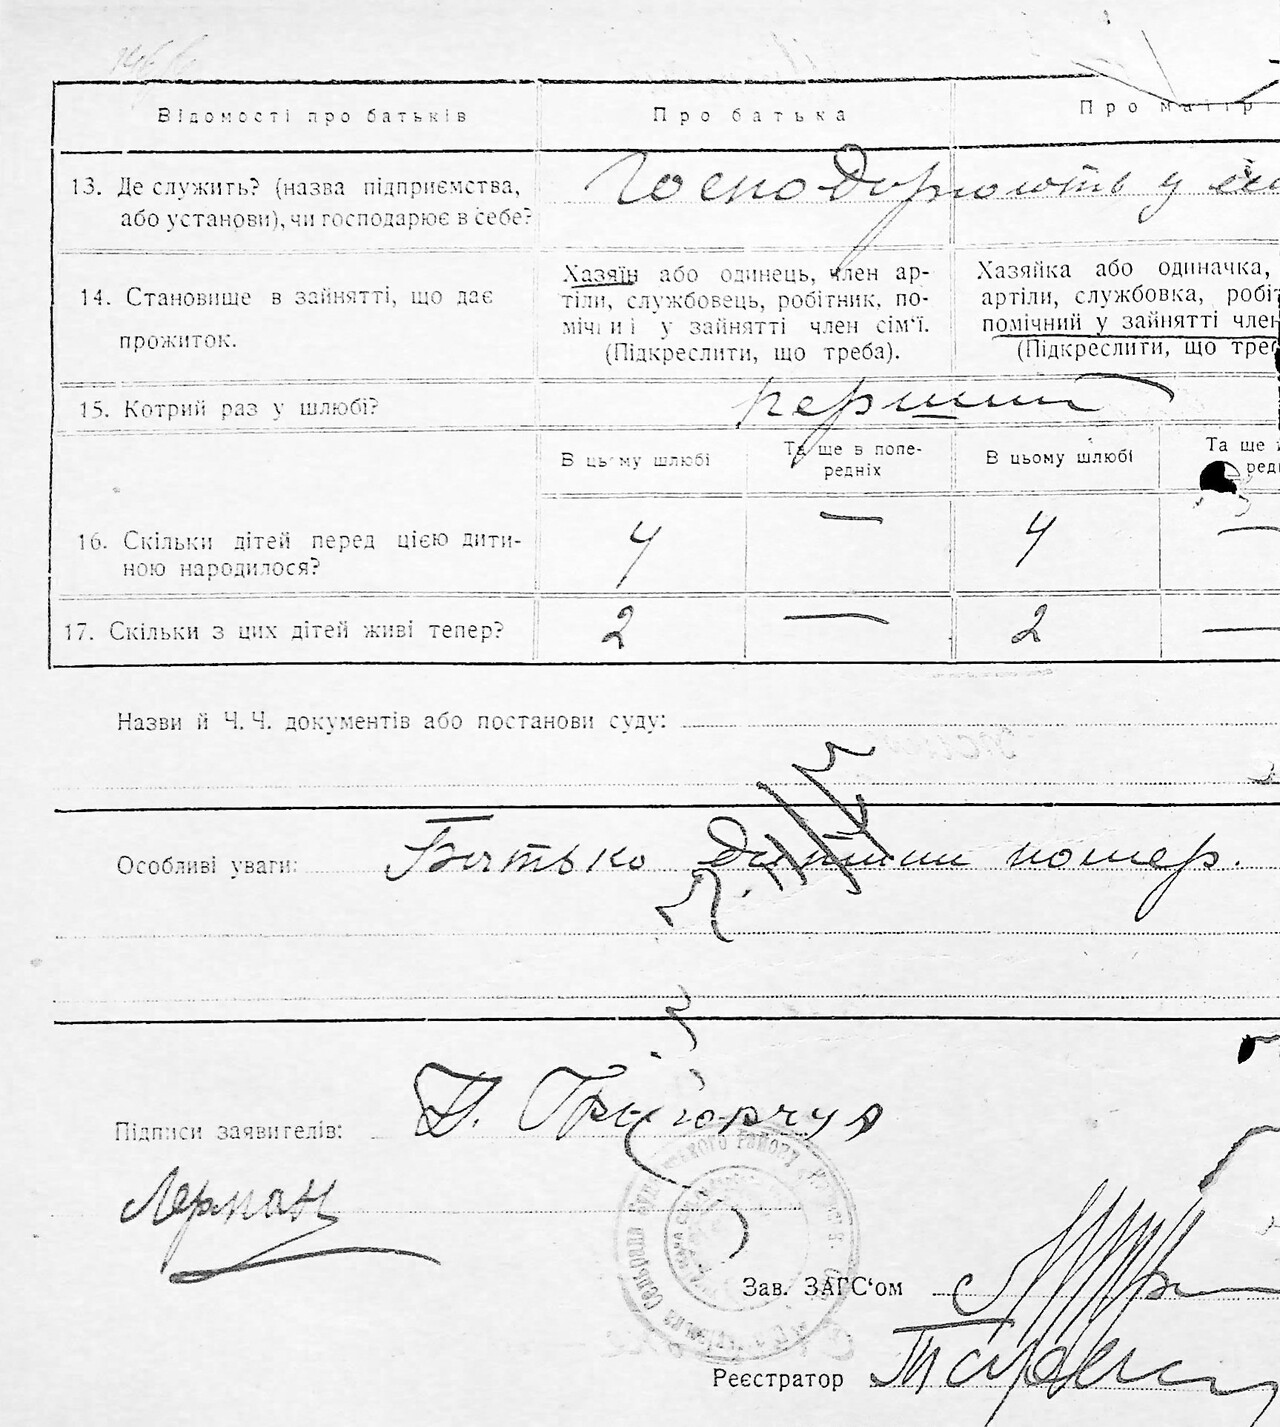 Відомості про батьків
Про батька
Про матір
13. Де служить? (назва підприємства,
або установи), чи господарює в себе?
Господорюють у
14. Становише в зайнятті, що дає
прожиток.
Хазяїн або одинець, член ар-
тіли, службовець, робітник, по-
мічний у зайнятті член сім'ї.
(Підкреслити, що треба).
Хазяйка або одиначка,
артіли, службовка, робіт
помічний у зайнятті член
(Підкреслити, що трe
15. Котрий раз у шлюбі?
перший
В цьому шлюбі
Та ще в попе-
редніх
В цьому шлюбі
Та ще
ред
16. Скільки дітей перед цією дити-
ною народилося?
4 — 4 —
17. Скільки з цих дітей живі тепер?
2 — 2 —
Назви й Ч. Ч. документів або постанови суду:
Особливі уваги: Батько дитини помер.
Підписи заявителів: Д. Григорчук
Лерман
Зав. ЗАГС'ом
Реєстратор